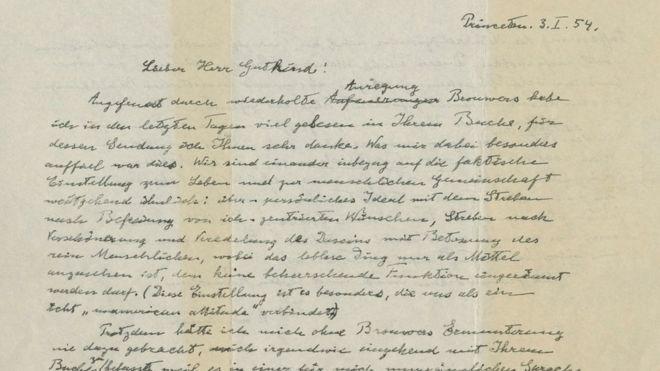 Princeton. 3. I. 54.
Lieber Herr Gutkind!
Angefeuert durch wiederholte Anregung Brouwers habe
ich in den letzten Tagen viel gelesen in Ihrem Buche, für
dessen Sendung ich Ihnen sehr danke. Was mir dabei besonders
auffiel war dies. Wir sind einander inbezug auf die faktische
Einstellung zum Leben und zur menschlichen Gemeinschaft
weitgehend ähnlich: über-persönliches Ideal mit dem Streben
nach Befreiung von ich-zentrierten Wünschen, Streben nach
Verschönerung und Veredelung des Daseins mit Betonung des
rein Menschlichen, wobei das leblose Ding nur als Mittel
anzusehen ist, dem keine beherrschende Funktion eingeräumt
werden darf. (Diese Einstellung ist es besonders, die uns als ein
echt „unamerican attitude" verbindet)
Trotzdem hätte ich mich ohne Brouwers Ermunterung
nie dazu gebracht, mich irgendwie eingehend mit Ihrem
Buch zu befassen, weil es in einer für mich unzugänglichen Sprache